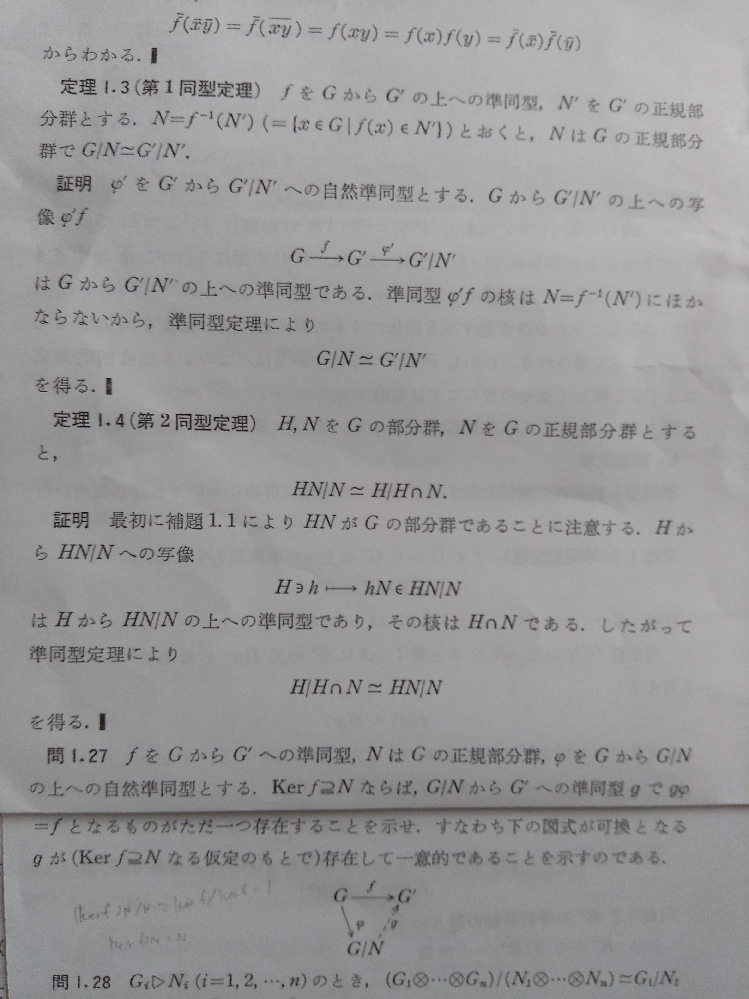 f̄(x̄ȳ) = f̄(x̄ȳ) = f(xy) = f(x)f(y) = f̄(x̄)f̄(ȳ)
からわかる. ▌
定理 1.3 (第1同型定理) f を G から G′ の上への準同型, N′ を G′ の正規部
分群とする. N=f⁻¹(N′) (={x∈G|f(x)∈N′}) とおくと, N は G の正規部分
群で G/N≃G′/N′.
証明 φ′ を G′ から G′/N′ への自然準同型とする. G から G′/N′ の上への写
像 φ′f
G —f→ G′ —φ′→ G′/N′
は G から G′/N′ の上への準同型である. 準同型 φ′f の核は N=f⁻¹(N′) にほか
ならないから, 準同型定理により
G/N ≃ G′/N′
を得る. ▌
定理 1.4 (第2同型定理) H, N を G の部分群, N を G の正規部分群とする
と,
HN/N ≃ H/H∩N.
証明 最初に補題 1.1 により HN が G の部分群であることに注意する. H か
ら HN/N への写像
H∋h ⟼ hN∈HN/N
は H から HN/N の上への準同型であり, その核は H∩N である. したがって
準同型定理により
H/H∩N ≃ HN/N
を得る. ▌
問 1.27 f を G から G′ への準同型, N は G の正規部分群, φ を G から G/N
の上への自然準同型とする. Ker f⊇N ならば, G/N から G′ への準同型 g で gφ
=f となるものがただ一つ存在することを示せ. すなわち下の図式が可換となる
g が (Ker f⊇N なる仮定のもとで) 存在して一意的であることを示すのである.
G —f→ G′
φ g
G/N
問 1.28 Gᵢ▷Nᵢ (i=1, 2, ⋯, n) のとき, (G₁⊗⋯⊗Gₙ)/(N₁⊗⋯⊗Nₙ)≃G₁/N₁